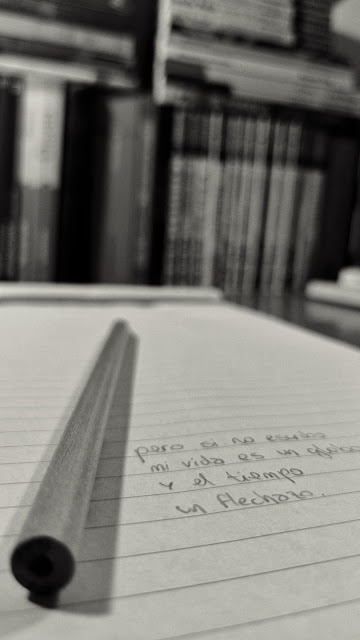 pero si no escribo
mi vida es un globo
y el tiempo
un flechazo.